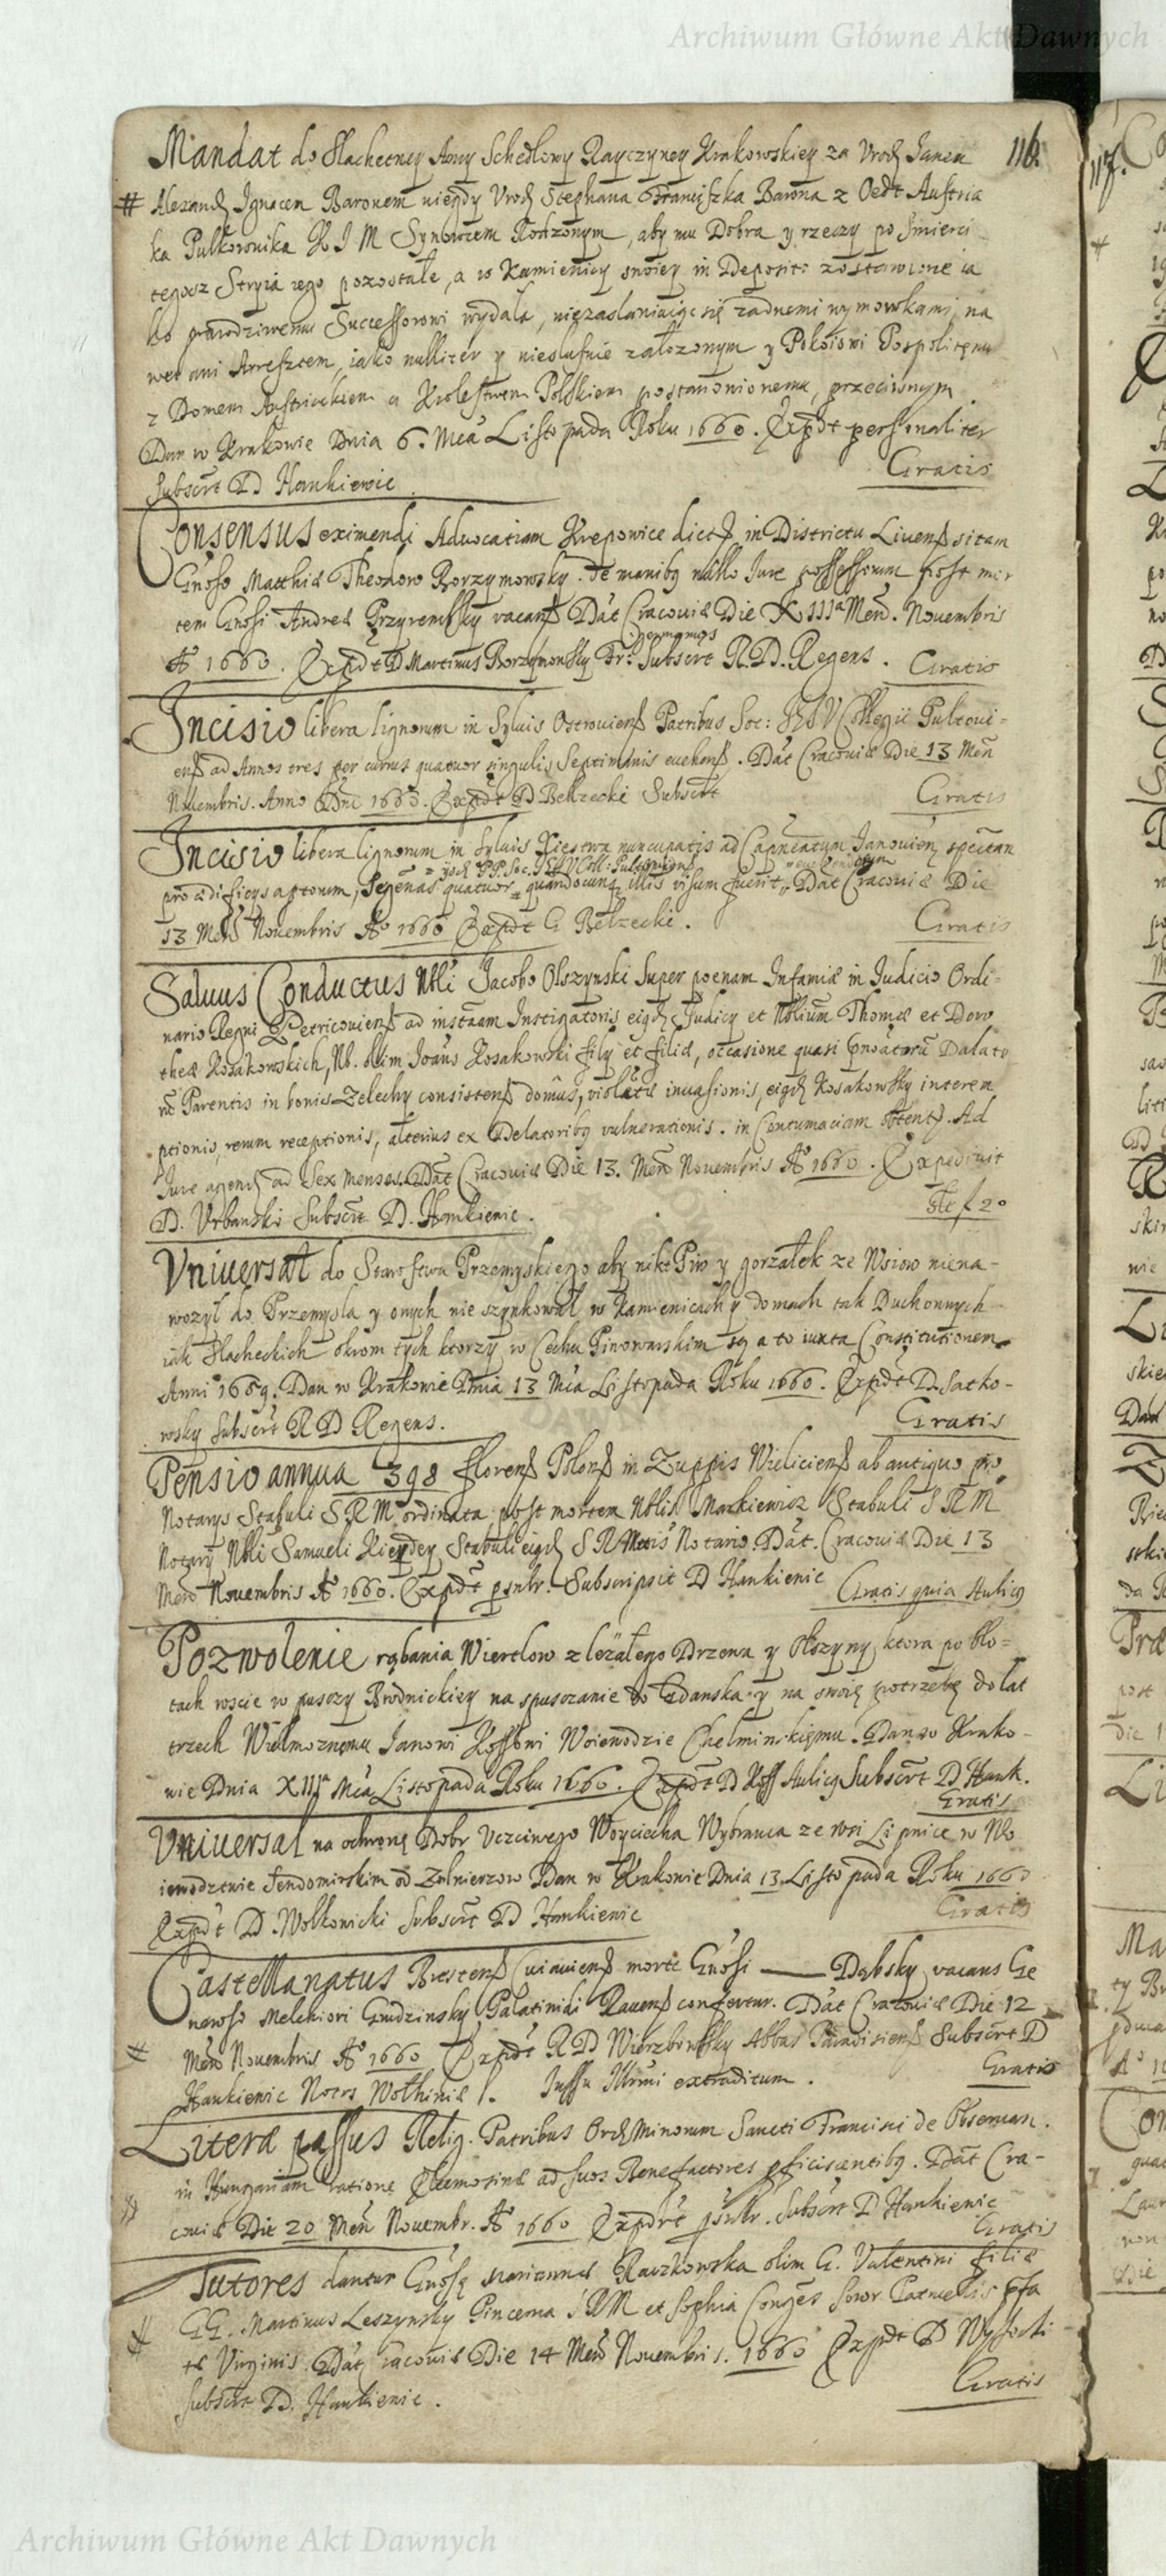 Archiwum Główne Akt Dawnych
116.
Mandat do Slachetney Anny Schedlowy Rayczyney Krakowskiey za Urodz Janem
# Alexandr Ignacem Baronem niegdy Urodz Stephana Franciszka Barona z Oedt Austria
ka Pulkownika K J M Synowcem Rodzonym, aby mu Dobra y rzeczy po smierci
tegosz Stryia iego pozostałe, a w Kamienicy swoiey in Deposit: zostawione ia
ko prawdziwemu Successorowi wydała, niezaslaniaiąc się żadnemi wymowkami, na
wet ani Arresztem, iako nulliter y niesłusznie załozonym y Pokoiowi Pospolitemu
z Domem Austriackiem a Krolestwem Polskiem postanowionemu, przeciwnym.
Dan w Krakowie Dnia 6. Mca Listopada Roku 1660. Expdt personaliter
Subscrt D Hankiewic Gratis
Consensus eximendi Advocatiam Krepowice dictß in Districtu Livenß sitam
Gnoso Matthiæ Theodoro Borzymowsky. de manibq nullo Iure possessorum post mor
tem Gnosi Andreæ Przyrembsky vacanß Dat Cracoviæ Die XIIIa Men. Novembris
Aº 1660. Expdt D Martinus Borzymowsky Fr: germanus Subscrt R.D. Regens. Gratis
Incisio libera lignorum in Sylvis Ostrovienß Patribus Soc: JESV Collegii Pultovi-
enß ad Annos tres per currus quatuor singulis Septimanis evehenß. Dat Cracoviæ Die 13 Men
Novembris. Anno Dni 1660. Expdt D Bełzecki Subscrt Gratis
Incisio libera lignorum in Sylvis Xiestwa nuncupatis ad Capneatum Janovien spectan
ijsdẽ PP. Soc. JESV Coll: Pultovienß evehendorum
pro ædificijs aptorum, Segenas quatuor quandocunq illis visum fuerit, Dat Cracoviæ Die
13 Men Novembris Aº 1660 Expdt G Bełzecki. Gratis
Salvus Conductus Nbli Jacobo Olszynski super poenam Infamiæ in Judicio Ordi-
nario Regni Petricovienß ad instaam Instigatoris eigdẽ Judicij et Nblium Thomæ et Doro
theæ Kosakowskich, Nb. olim Joans Kosakowski filij et filiæ, occasione quasi
Parentis in bonis Zelechy consistenß domus, violetæ invasionis, eigdẽ Kosakowsky interem
ptionis, rerum receptionis, alterius ex Delatoribq vulnerationis. in Contumaciam obtentß. Ad
Iure agendẽ ad Sex Menses. Dat Cracoviæ Die 13. Men Novembris Aº 1660. Expedivit
D. Urbanski Subscrt D. Hankiewic. f 20
Universał do Starostwa Przemyskiego aby nikt Piw y gorzałek ze Wsiow niena-
woził do Przemysla y onych nie szynkował w Kamienicach y domach tak Duchownych
iak Slacheckich okrom tych ktorzy w Cechu Piwowarskim są a to iuxta Constitutionem
Anni 1659. Dan w Krakowie Dnia 13 Mca Listopada Roku 1660. Expdt D. Satko-
wsky Subscrt R D Regens. Gratis
Pensio annua 398 florenß Polonß in Zuppis Wielicienß ab antiquo pro
Notarijs Stabuli S R M ordinata post mortem Nblis Markiewicz Stabuli S R M
Notarij Nbli Samueli Kieydey Stabuli eigdẽ S R Mttis Notario. Dat. Cracoviæ Die 13
Men Novembris Aº 1660. Expdt psnlr. Subscripsit D Hankiewic Gratis quia Aulicq
Pozwolenie rąbania Wiertlow z lezałego Drzewa y olszyny, ktora po bło=
tach roscie w puszczy Brodnickiey na spuszczanie do Gdanska y na swoię potrzebę do lat
trzech Wielmoznemu Janowi Kossowi Woiewodzie Chełminskiemu. Dan w Krako-
wie Dnia XIIIa Mca Listopada Roku 1660. Expdt D Koss Aulicq Subscrt D Hank.
Gratis
Universał na ochronę Dobr Uczciwego Woyciecha Wybranca ze wsi Lipnice w Wo
iewodztwie Sendomirskim od Zołnierzow Dan w Krakowie Dnia 13 Listopada Roku 1660
Expdt D. Wołkonicki Subscrt D Hankiewic Gratis
Castellanatus Brestenß Cuiavienß morte Gnosi —— Dąbsky vacans Ge
neroso Melchiori Grudzinsky Palatinidi Ravenß confertur. Dat Cracoviæ Die 12
# Men Novembris Aº 1660 Expdt R D Wierzbowsky Abbas Paradisienß Subscrt D
Hankiewic Notrs Wołhiniæ. Jussu Illrmi extraditum. Gratis
Literæ passus Relig. Patribus Ord Minorum Sancti Francisci de Observan.
in Hungariam ratione Eleemosinæ ad suos Benefactores pficiscentibq. Dat Cra-
# coviæ Die 20 Men Novembr. Aº 1660 Expdrt psnlr. Subscrt D Hankiewic
Gratis
Tutores dantur Gnosę Mariannæ Raczkowska olim G. Valentini filiæ
GG. Martinus Leszynsky Pincerna S R M et Sophia Conges Soror Patruelis pfa
# tæ Virginis. Dat Cracoviæ Die 14 Men Novembris. 1660 Expdt D Wysocki
Subscrt D. Hankiewic. Gratis
117.
Archiwum Główne Akt Dawnych